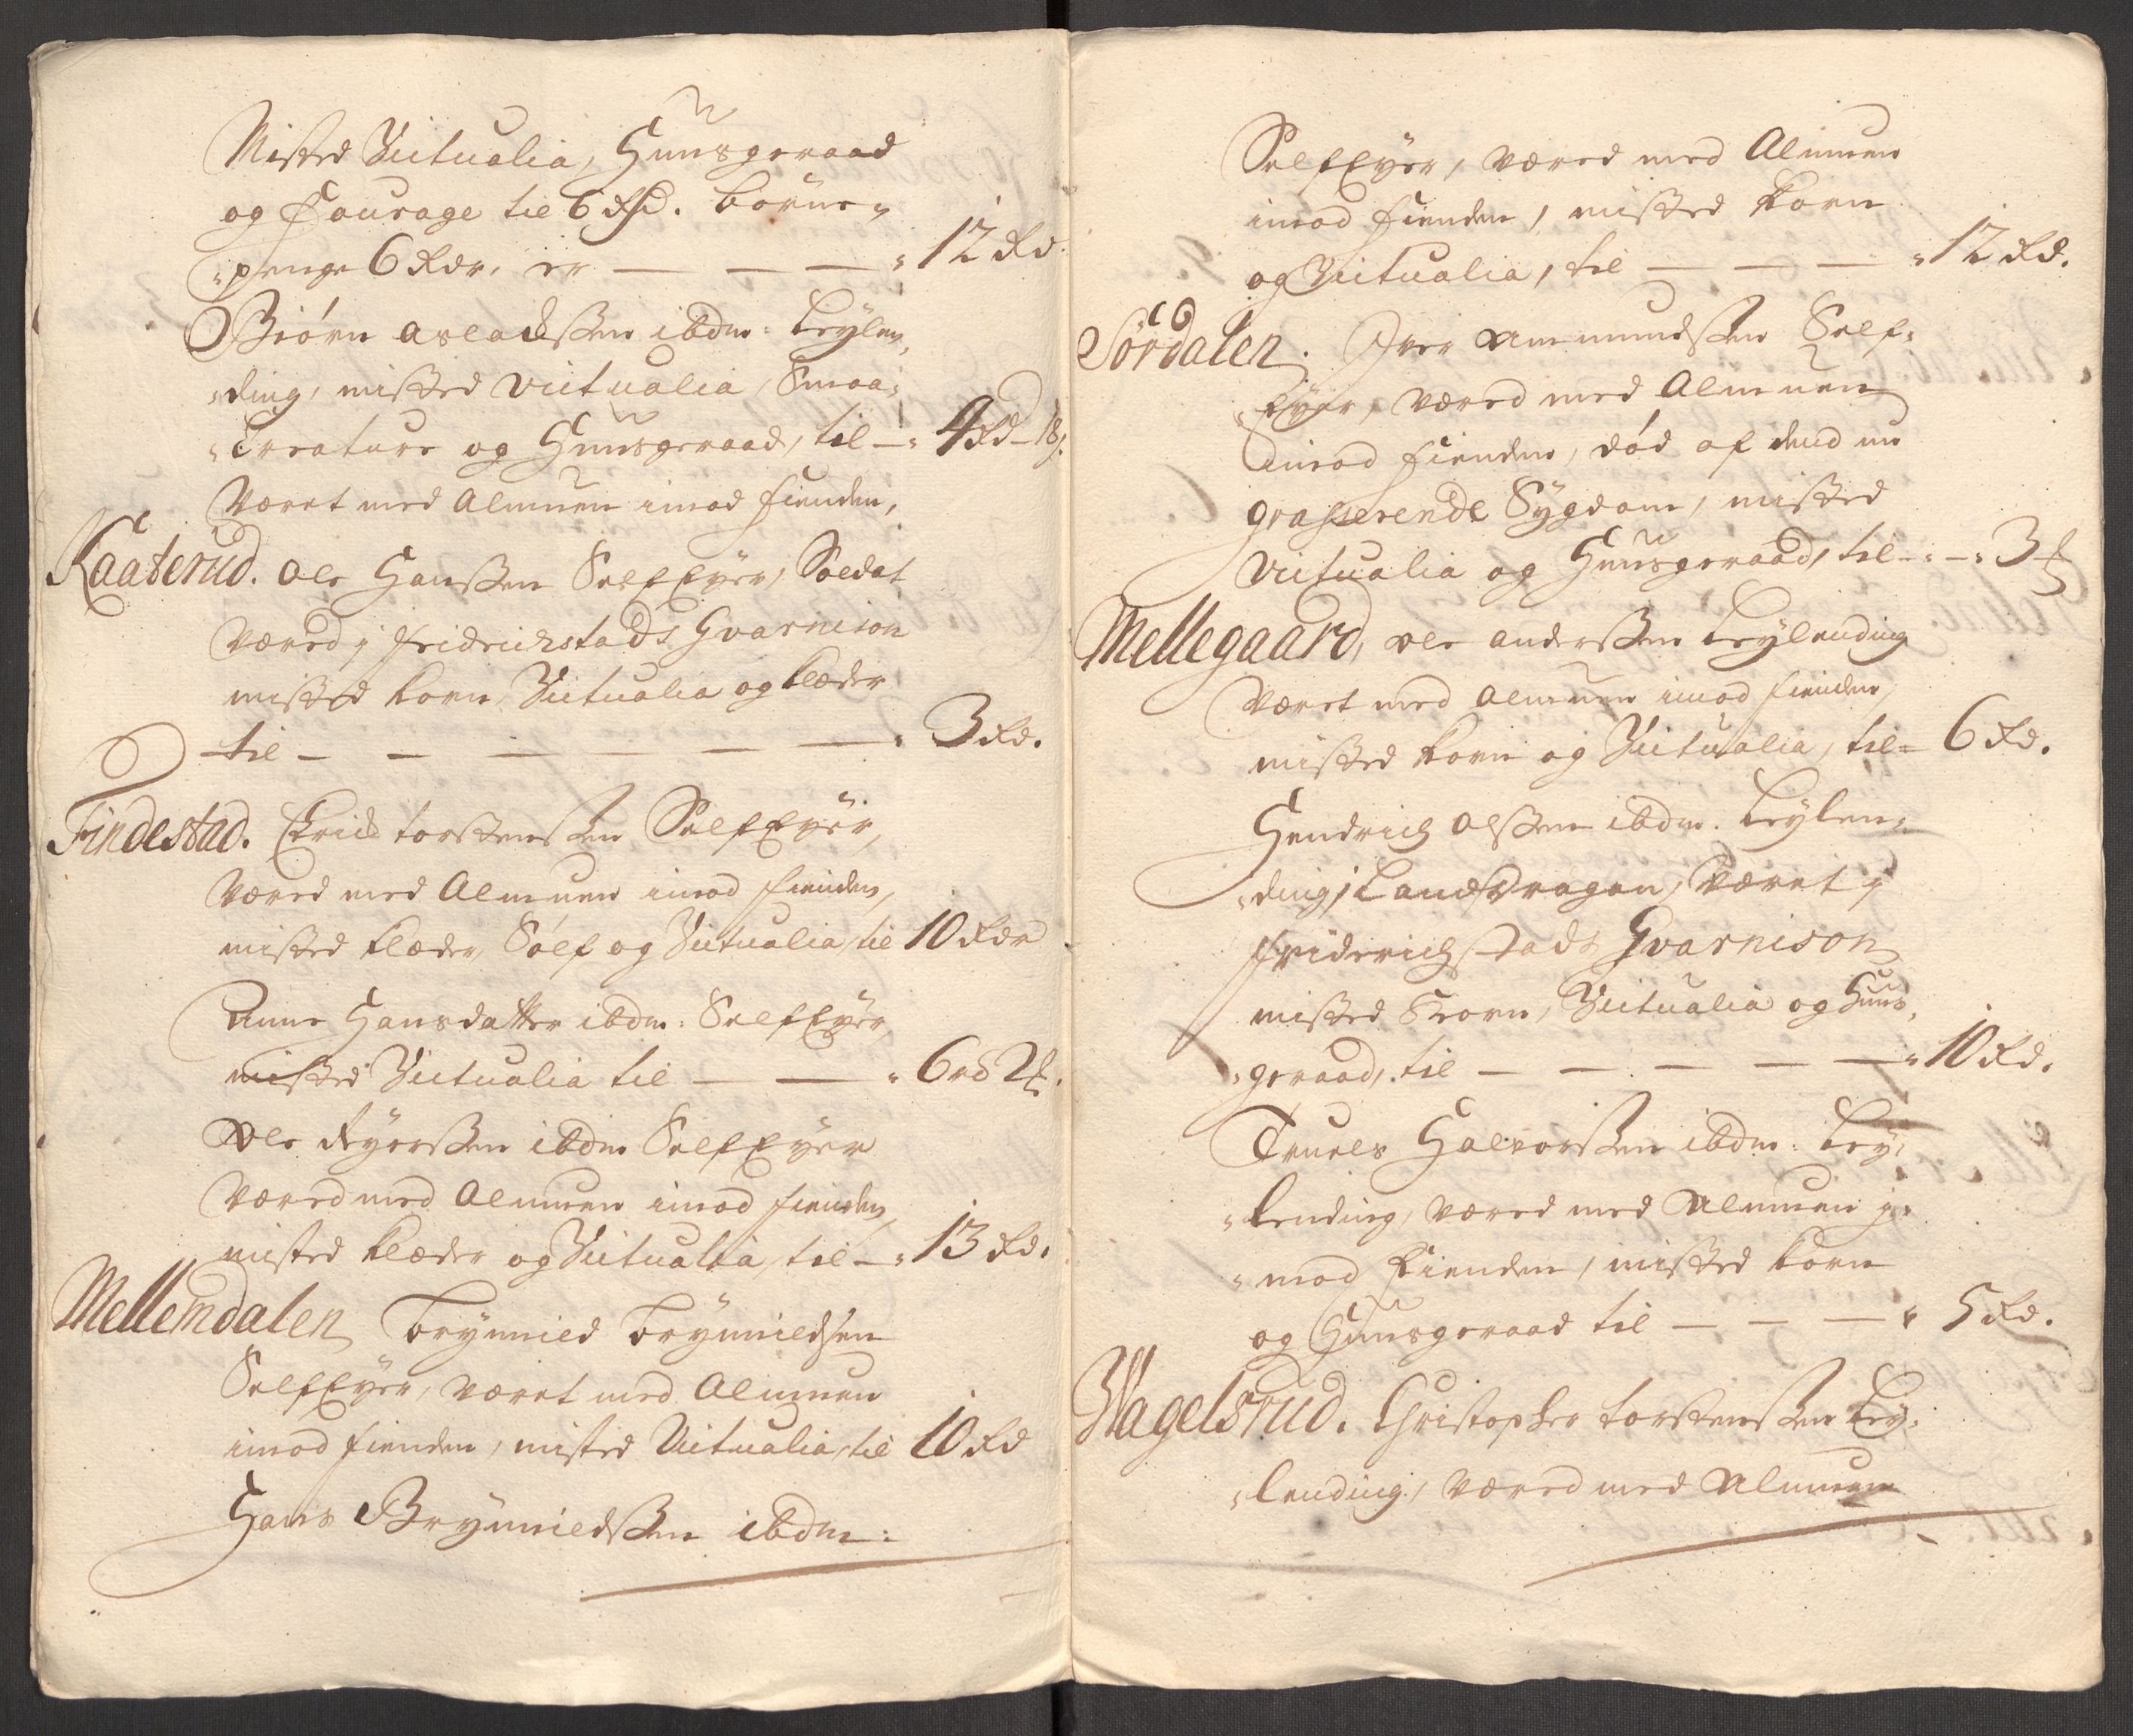 Misted Victualia, Huusgeraad
og Fourage til 6 Rd. börne-
penge 6 Rdr. er — — — 12 Rd.
Biörn Aslacksen ibdm: Leylen-
ding, misted Victualia, Smaa-
Creature og Huusgeraad, til — 4 Rd -
Været med Almuen imod Fienden,
Kaaterud. Ole Hanssen SelfEyer, Soldat
Været j Fridrichstads Gvarnison
misted Korn, Victualia og Klæder
til — — — — — — 3 Rd.
Findestad. Erick Torstenssen SelfEyer,
Været med Almuen imod Fienden,
misted Klæder, Sölf og Victualia, til 10 Rdr
Anne Hansdatter ibdm: SelfEyer,
misted Victualia til — — 6 rd 2
Ole Reyerssen ibdm SelfEyer
Været med Almuen imod Fienden,
misted Klæder og Victualia, til — 13 Rd.
Mellemdalen Brynnild Brynnildsen
SelfEyer, Været med Almuen
imod Fienden, misted Victualia, til 10 Rd
Hans Brynnildssen ibdm:
SelfEyer, Været med Almuen
imod Fienden, misted Korn
og Victualia, til — — — 12 Rd.
Sördalen. Iver Ammundssen Self-
Eyer, Været med Almuen
imod Fienden, död af dend nu
grasserende Sÿgdom, misted
Victualia og Huusgeraad, til — — 3
Mellegaard, Ole Anderssen Leylending
Været med Almuen imod Fienden,
misted Korn og Victualia, til 6 Rd.
Hendrich Olssen ibdm. Leylen-
ding, LandDragon, Været j
Friderichstads Gvarnison
misted Korn, Victualia og Huus-
geraad, til — — — — — 10 Rd.
Truels Halvorssen ibdm: Ley-
lending, Været med Almuen j-
mod Fienden, misted Korn
og Huusgeraad til — — — 5 Rd.
Wagelsrud. Christopher Torstenssen Ley-
lending, Været med Almuen